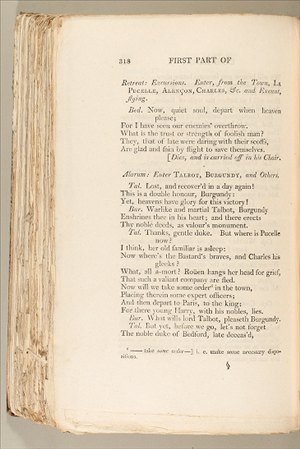 318 FIRST PART OF
Retreat: Excursions. Enter, from the Town, LA
PUCELLE, ALENÇON, CHARLES, &c. and Exeunt,
flying.
Bed. Now, quiet soul, depart when heaven
please;
For I have seen our enemies' overthrow.
What is the trust or strength of foolish man?
They, that of late were daring with their scoffs,
Are glad and fain by flight to save themselves.
[Dies, and is carried off in his Chair.
Alarum: Enter TALBOT, BURGUNDY, and Others.
Tal. Lost, and recover'd in a day again!
This is a double honour, Burgundy:
Yet, heavens have glory for this victory!
Bur. Warlike and martial Talbot, Burgundy
Enshrines thee in his heart; and there erects
Thy noble deeds, as valour's monument.
Tal. Thanks, gentle duke. But where is Pucelle
now?
I think, her old familiar is asleep:
Now where's the Bastard's braves, and Charles his
gleeks?
What, all a-mort? Roüen hangs her head for grief,
That such a valiant company are fled.
Now will we take some order in the town,
Placing therein some expert officers;
And then depart to Paris, to the king;
For there young Harry, with his nobles, lies.
Bur. What wills lord Talbot, pleaseth Burgundy.
Tal. But yet, before we go, let's not forget
The noble duke of Bedford, late deceas'd,
—— take some order—] i. e. make some necessary dispo-
sitions.